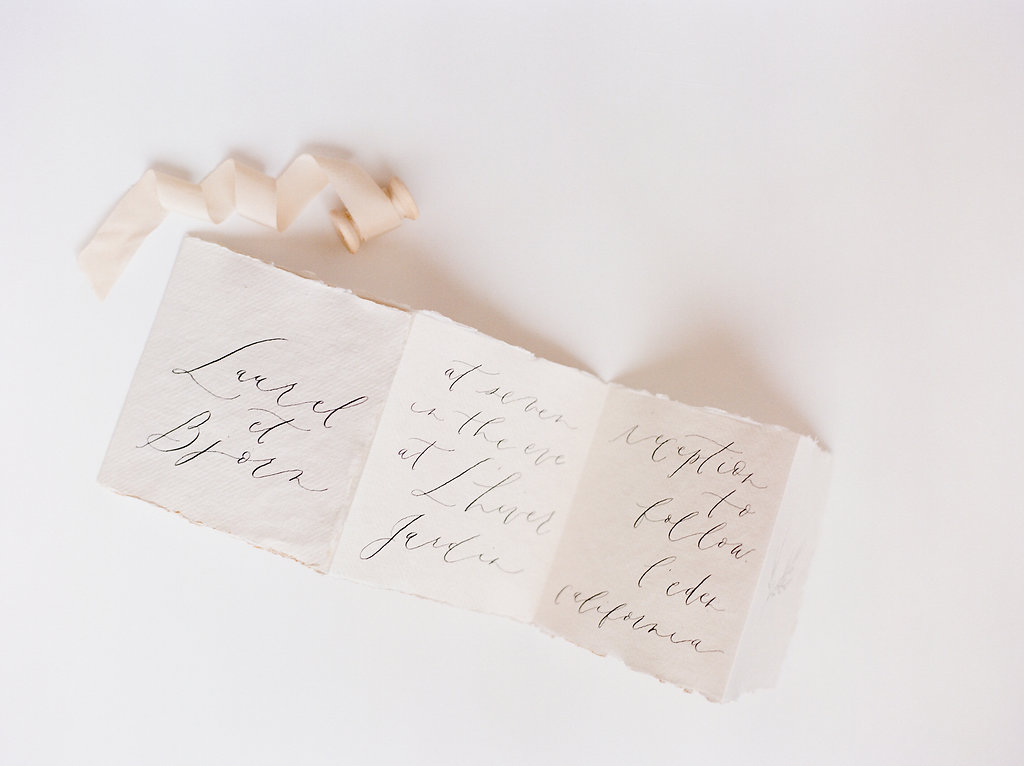 Laurel
et
Bjorn
at seven
in the eve
at L'hiver
Jardin
reception
to
follow.
l'eden
California